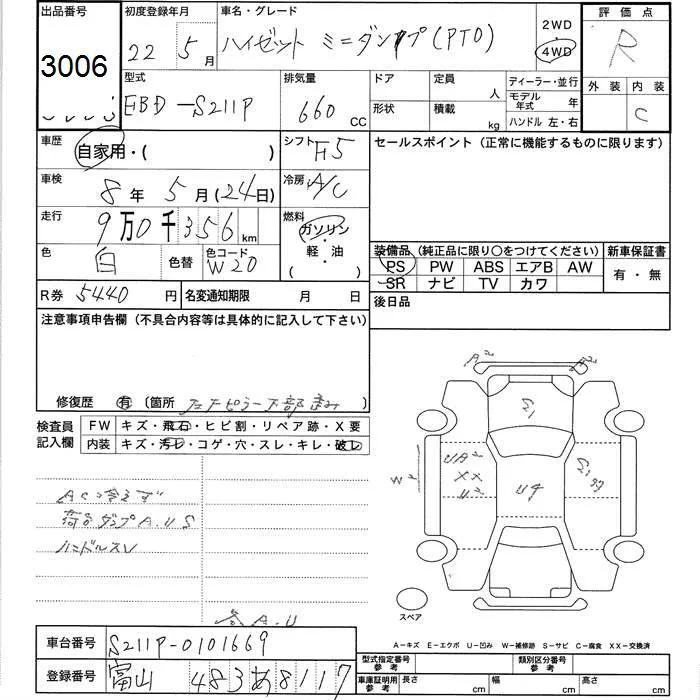 出品番号 初度登録年月 車名・グレード 2WD 評価点
3006 22 5月 ハイゼット ミニダンプ(PTO) 4WD R
型式 排気量 ドア 定員 人 ディーラー・並行 外装 内装
EBD-S211P 660 CC 形状 積載 kg モデル年式 年 C
ハンドル 左・右
車歴 自家用・( ) シフト F5 セールスポイント(正常に機能するものに限ります)
車検 8年 5月(24日) 冷房 A/C
走行 9万0千356km 燃料 ガソリン・軽油( )
色 白 色替 色コード W20
装備品(純正品に限り○をつけてください) 新車保証書
PS PW ABS エアB AW 有・無
SR ナビ TV カワ
R券 5440円 名変通知期限 月 日 後日品
注意事項申告欄(不具合内容等は具体的に記入して下さい)
修復歴 有 〔箇所
検査員記入欄 FW キズ・飛石・ヒビ割・リペア跡・X要
内装 キズ・汚レ・コゲ・穴・スレ・キレ・破レ
AC冷えず
荷台ダンプA.U S
ハンドルスレ
A2 A2
UA2
XX
U2
W
スペア
各A.U
A-キズ E-エクボ U-凹み W-補修跡 S-サビ C-腐食 XX-交換済
車台番号 S211P-0101669
型式指定番号参考 類別区分番号参考
登録番号 富山 483 あ 8117
車庫証明用参考 長さ cm 幅 cm 高さ cm